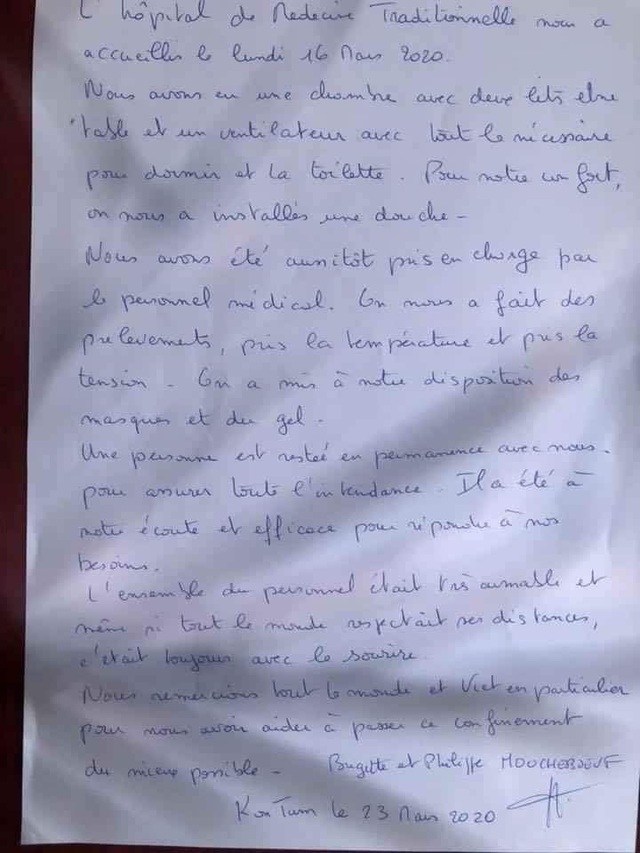 L'hôpital de Medecine Traditionnelle nous a
accueillis le lundi 16 Mars 2020.
Nous avons eu une chambre avec deux lits, une
table et un ventilateur avec tout le nécessaire
pour dormir et la toilette. Pour notre confort,
on nous a installés une douche -
Nous avons été aussitôt pris en charge par
le personnel médical. On nous a fait des
prelevements, pris la température et pris la
tension - On a mis à notre disposition des
masques et du gel -
Une personne est restée en permanence avec nous.
pour assurer toute l'intendance. Il a été à
notre écoute et efficace pour répondre à nos
besoins.
L'ensemble du personnel était très aimable et
même si tout le monde respectait ses distances,
c'était toujours avec le sourire.
Nous remercions tout le monde et Viet en particulier
pour nous avoir aider à passer ce confinement
du mieux possible - Brigitte et Philippe
Kon Tum le 23 Mars 2020